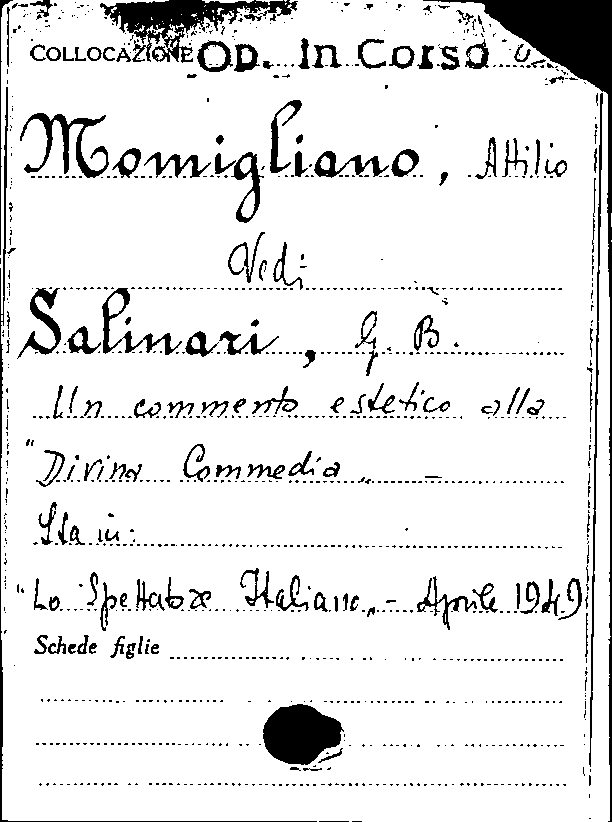 COLLOCAZIONE Op. In Corso
Momigliano, Attilio
Vedi
Salinari, G. B.
Un commento estetico alla
"Divina Commedia„ –
Sta in:
"Lo Spettatore Italiano„ – Aprile 1949
Schede figlie